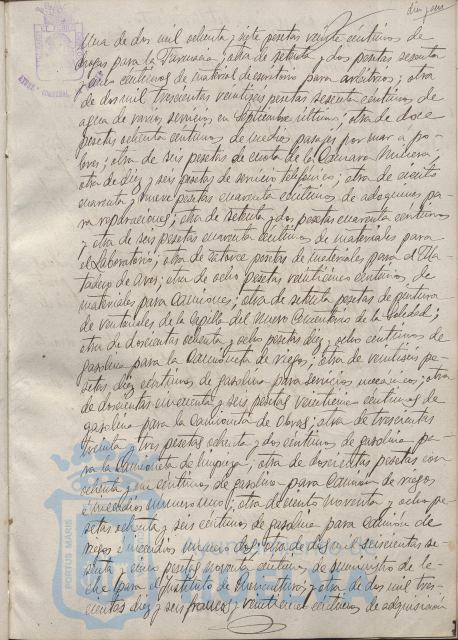 diez y seis
Una de dos mil ochenta y siete pesetas veinte céntimos de
drogas para la Farmacia; otra de setenta y dos pesetas sesenta
y cinco céntimos de material de escritorio para arbitrios; otra
de dos mil trescientas veintiseis pesetas sesenta céntimos de
agua de varios servicios en Septiembre último; otra de doce
pesetas ochenta céntimos de medios pasajes por mar a po-
bres; otra de seis pesetas de cuota de la Cámara Minera;
otra de diez y seis pesetas de servicio telefónico; otra de ciento
cuarenta y nueve pesetas cuarenta céntimos de adoquines pa-
ra reparaciones; otra de setenta y dos pesetas cuarenta céntimos
y otra de seis pesetas cuarenta céntimos de materiales para
el Laboratorio; otra de catorce pesetas de materiales para el Ma-
tadero de Aves; otra de ocho pesetas veinticinco céntimos de
materiales para Camiones; otra de setenta pesetas de pintura
de ventanales de la Capilla del Nuevo Cementerio de la Soledad;
otra de doscientas ochenta y ocho pesetas diez y ocho céntimos de
gasolina para la Camioneta de riegos; otra de veintiseis pe-
setas diez céntimos de gasolina para servicios mecánicos; otra
de doscientas cincuenta y seis pesetas veinticinco céntimos de
gasolina para la Camioneta de Obras; otra de trescientas
treinta y tres pesetas ochenta y dos céntimos de gasolina pa-
ra la Camioneta de limpieza; otra de doscientas pesetas con
ochenta y un céntimos de gasolina para Camión de riegos
e incendios número uno; otra de ciento noventa y ocho pe-
setas ochenta y seis céntimos de gasolina para Camión de
riegos e incendios número dos; otra de dos mil seiscientas se-
senta y cinco pesetas noventa céntimos de suministro de le-
che para el Instituto de Puericultura; y otra de dos mil tres-
cientos diez y seis francos y veinticinco céntimos de adquisición
PORTUS MARIS